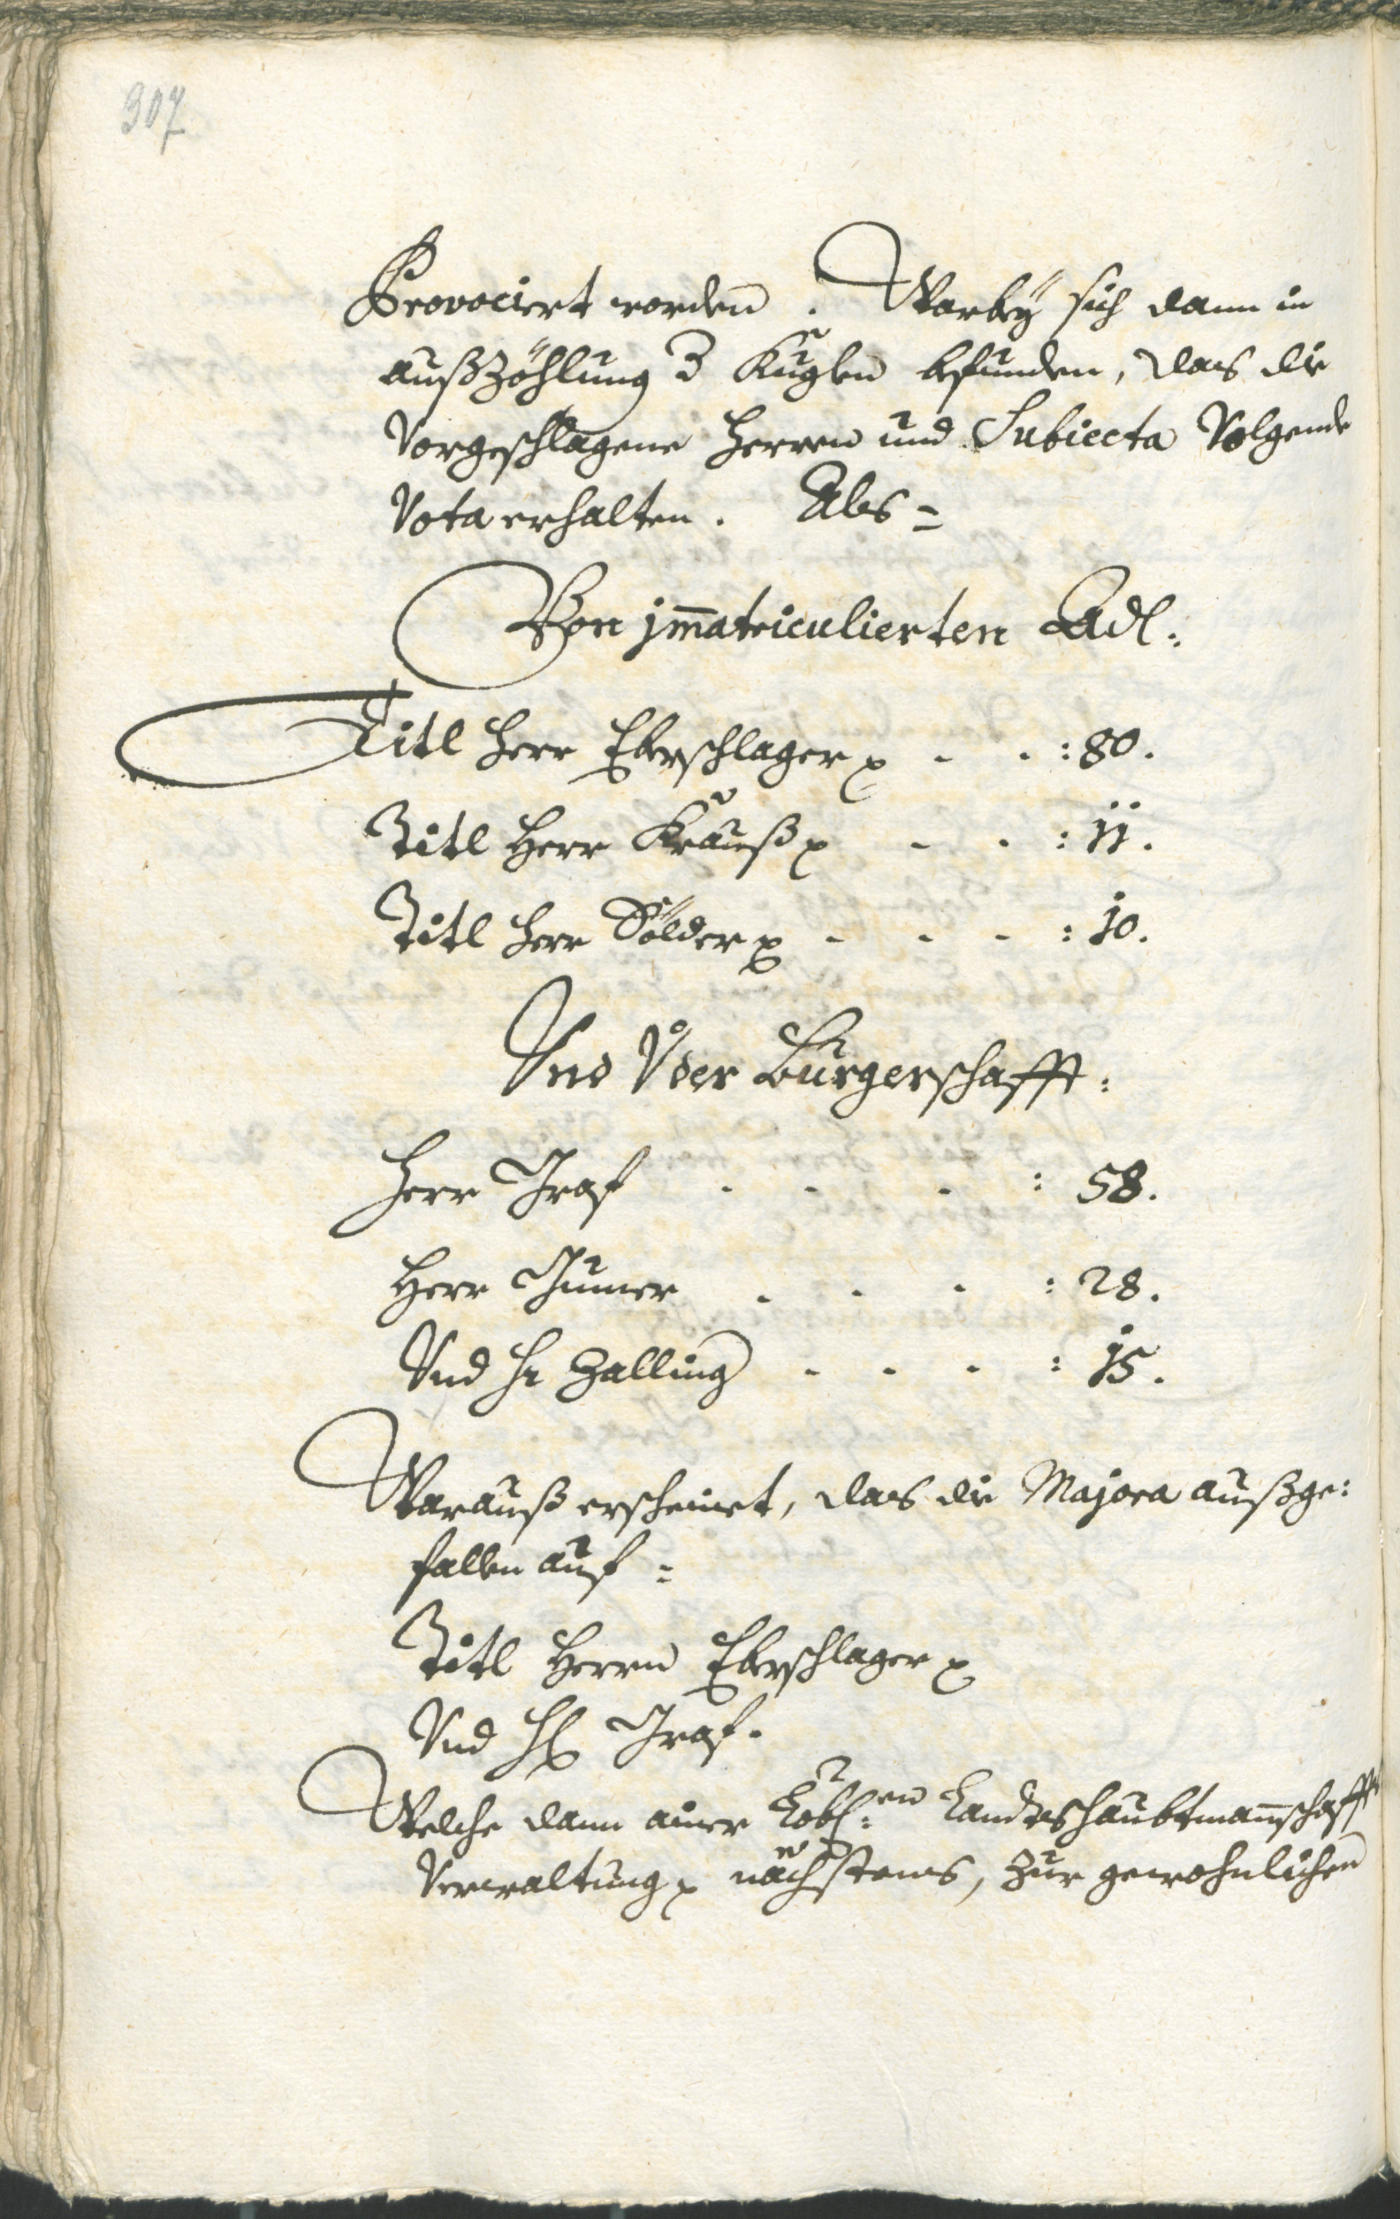 307
Provociert worden. Warbeÿ sich dann in
außzöhlung d Kuglen befunden, das die
Vorgeschlagene Herren und Subiecta Volgende
Vota erhalten. Als =
Von jm̄atriculierten Adl:
Titl Herr Eberschlager - - : 80.
Titl Herr Krauß - - : 11.
Titl Herr Sölder - - - : 10.
Vnd Vder Burgerschafft:
Herr Graf - - - : 58.
Herr Gumer - - - : 28.
Vnd Hr Zalling - - - : 15.
Warauß erscheinet, das die Majora außge:
fallen auf =
Titl Herrn Eberschlager
Vnd H Graf.
Welche dann ainer Löbl:en Landtshaubtman̄schafft
Verwaltung nächstens, zur gewohnlichen